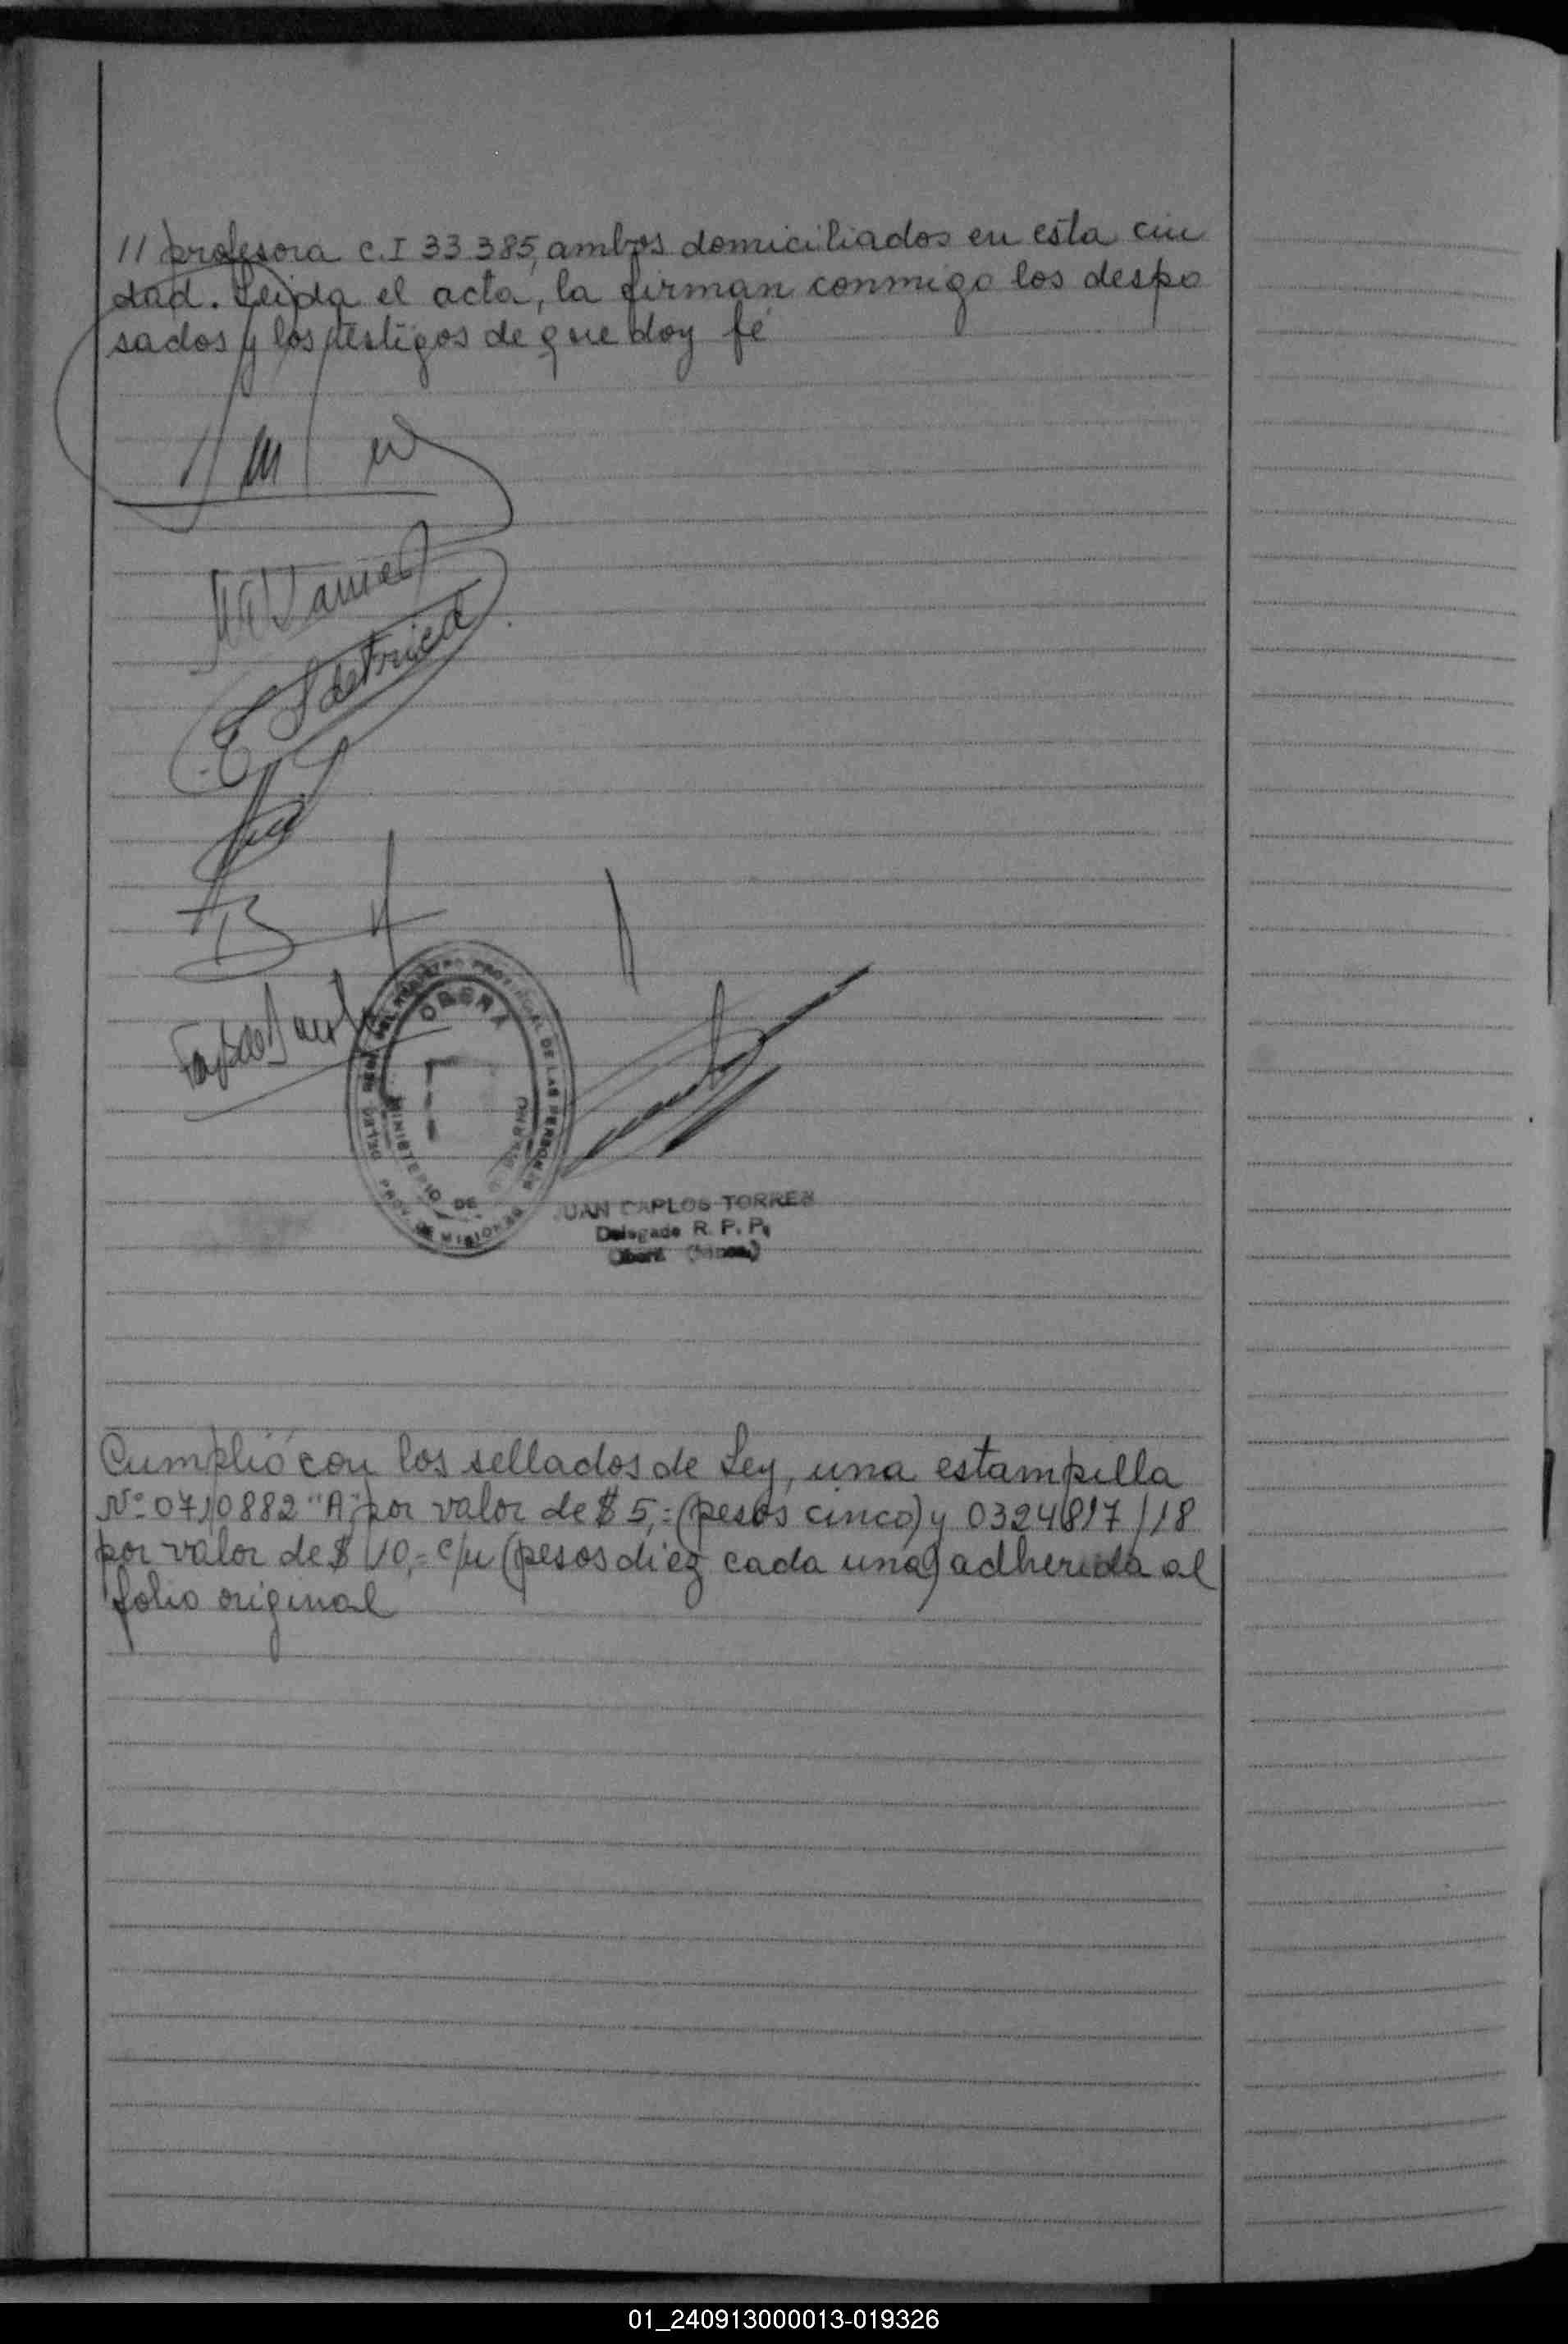 // profesora C.I 33.385, ambos domiciliados en esta ciu
dad. Leida el acta, la firman conmigo los despo
sados y los testigos de que doy fé
OBERA
MINISTERIO DE
DE LAS PERSONAS
PROV. DE MISIONES
JUAN CARLOS TORRES
Delegado R. P. P.
Oberá
Cumplió con los sellados de Ley, una estampilla
Nº 0710882 "A" por valor de $ 5,= (pesos cinco) y 0324817/18
por valor de $ 10,= c/u (pesos diez cada una) adherida al
folio original
01_240913000013-019326